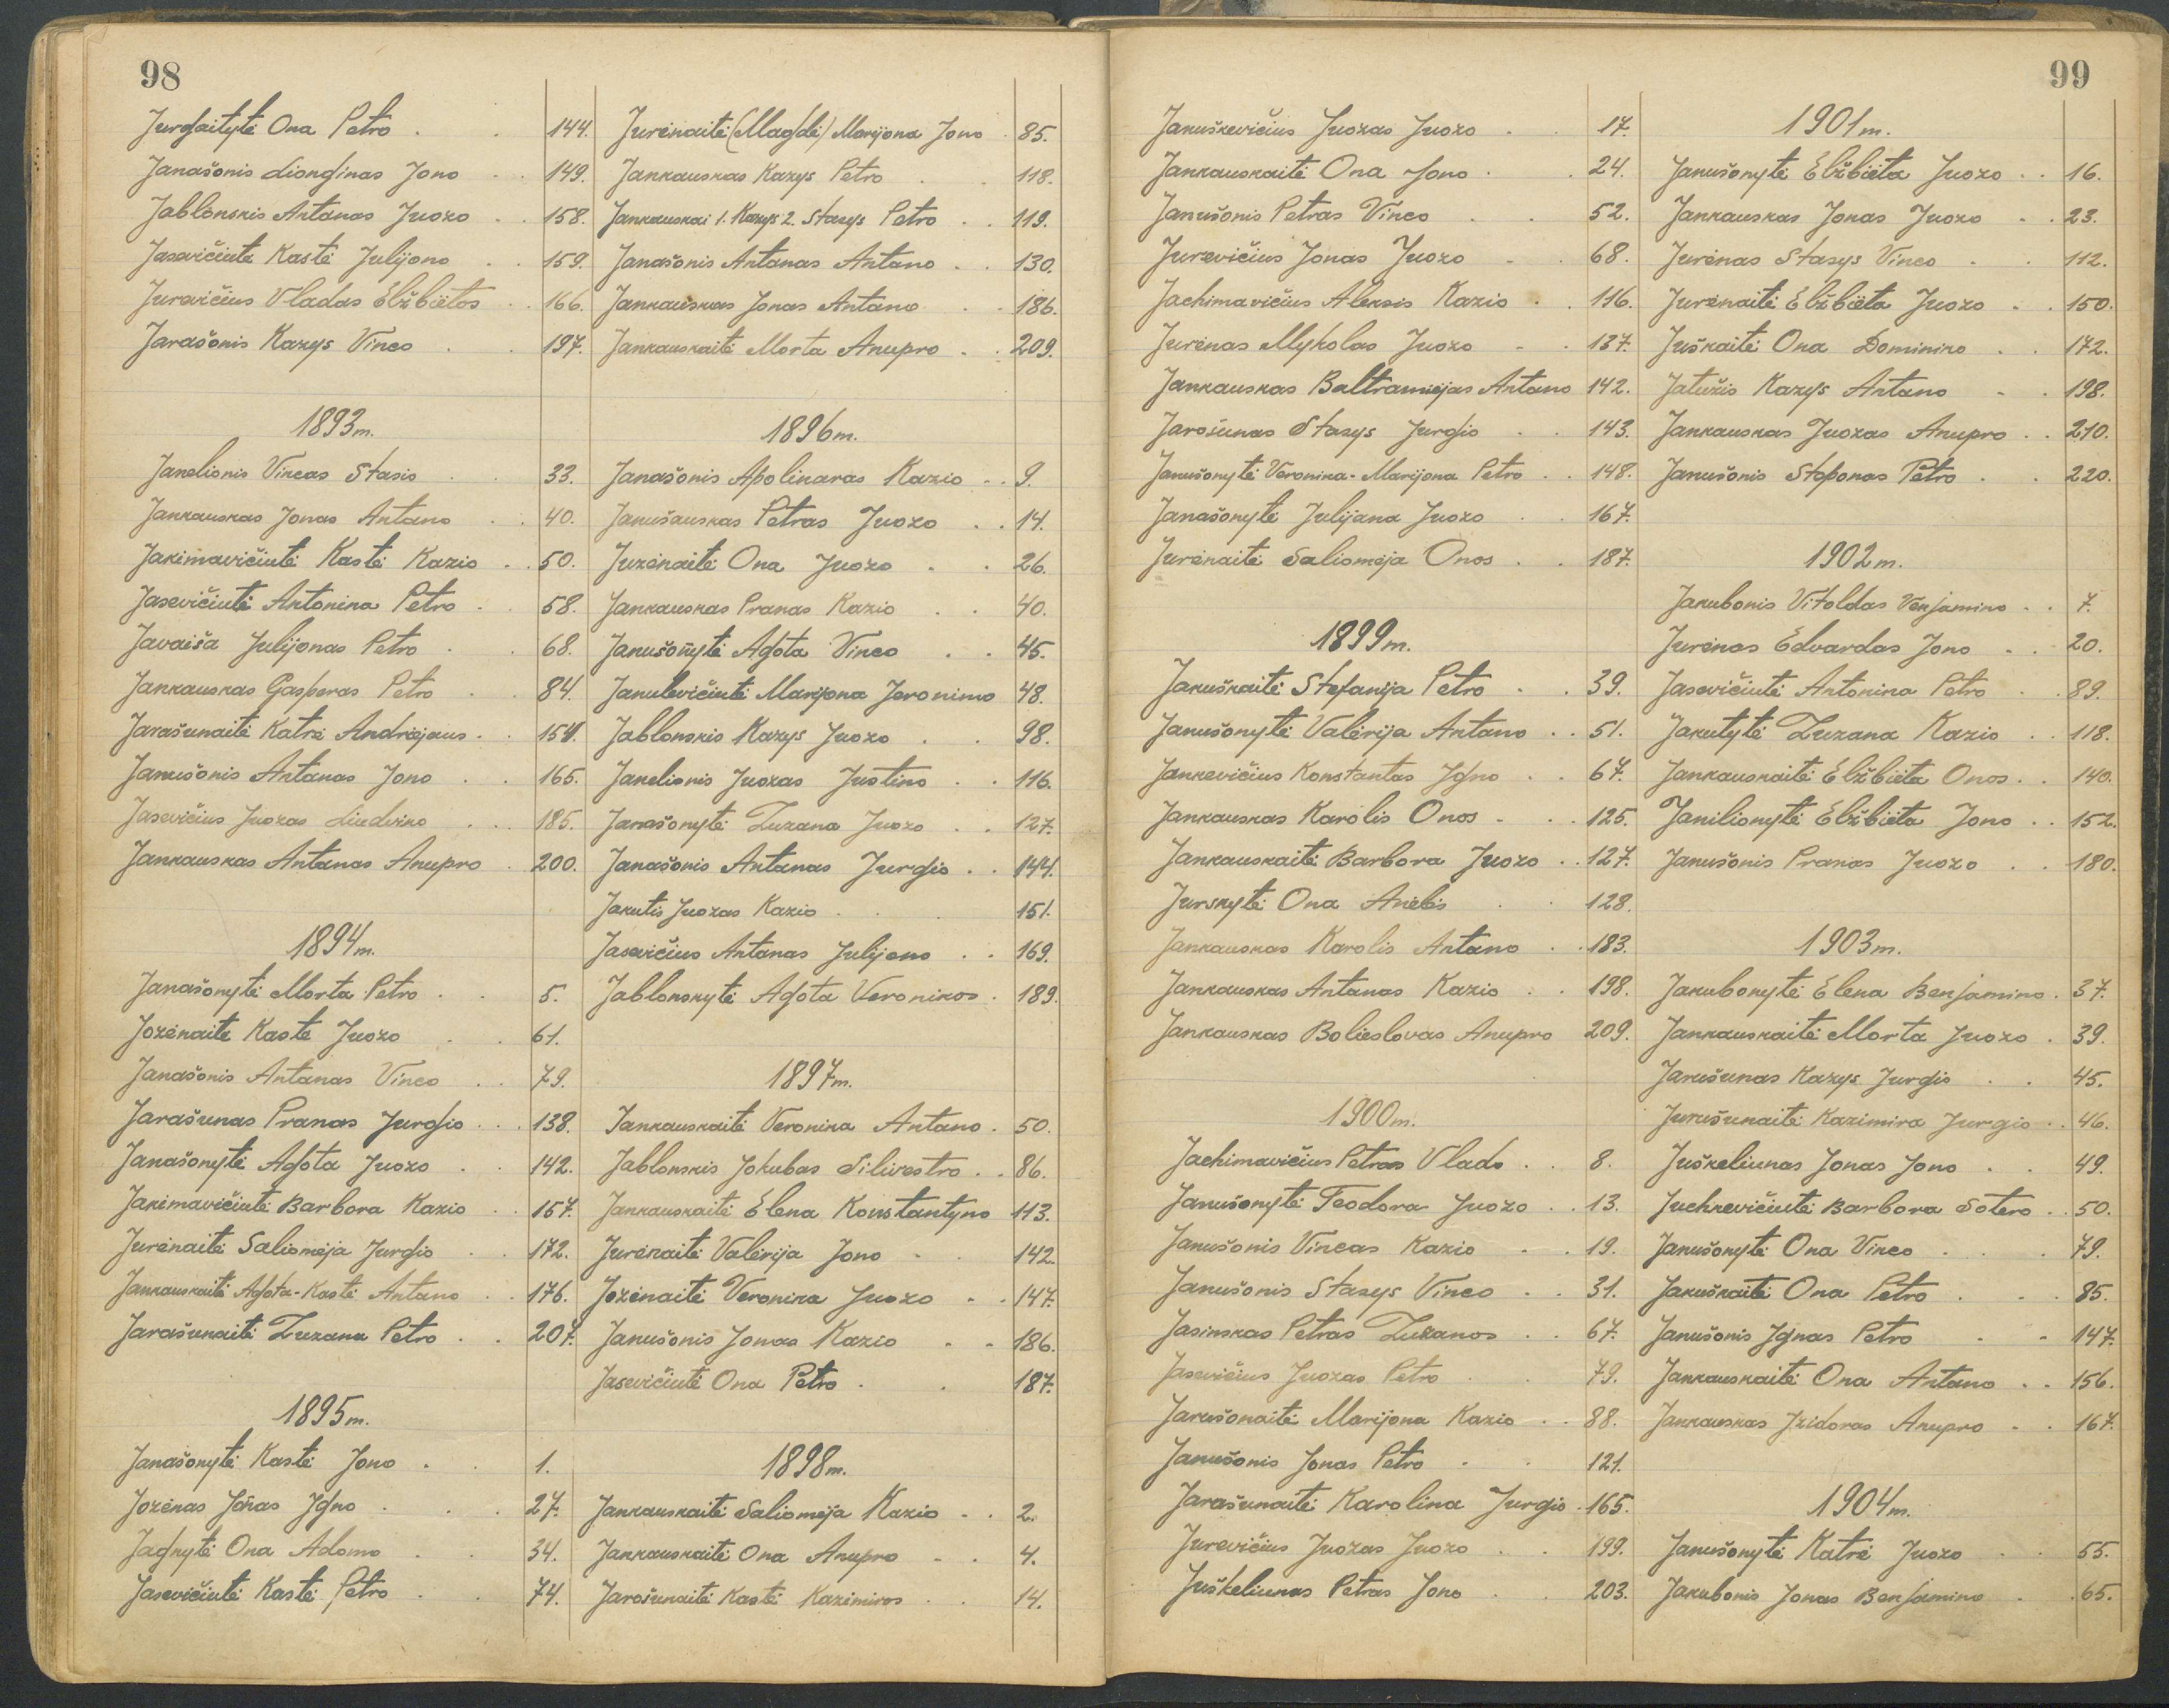 98
Jurgaitytė Ona Petro . . 144.
Janašonis Lionginas Jono . . 149.
Jablonskis Antanas Juozo . . 158.
Jasevičiutė Kastė Julijono . . 159.
Jurevičius Vladas Elžbietos . . 166.
Jarašonis Kazys Vinco . . 197.
1893 m.
Janelionis Vincas Stasio . . 33.
Jankauskas Jonas Antano . . 40.
Jakimavičiutė Kastė Kazio . . 50.
Jasevičiutė Antonina Petro . . 58.
Javaiša Julijonas Petro . . 68.
Jankauskas Gasparas Petro . . 84.
Jarašunaitė Katrė Andrėjaus . . 154.
Janušonis Antanas Jono . . 165.
Jasevičius Juozas Liudviko . . 185.
Jankauskas Antanas Anupro . 200.
1894 m.
Janašonytė Morta Petro . . 5.
Jozėnaitė Kastė Juozo . . 61.
Janašonis Antanas Vinco . . 79.
Jarašunas Pranas Jurgio . . . 138.
Janašonytė Agota Juozo . . 142.
Jakimavičiutė Barbora Kazio . . 157.
Jurėnaitė Saliomėja Jurgio . . 172.
Jankauskaitė Agota-Kastė Antano . . 176.
Jarašunaitė Zuzana Petro . . 207.
1895 m.
Janašonytė Kastė Jono . . 1.
Jozėnas Jonas Igno . . . 27.
Jagnytė Ona Adomo . . 34.
Jasevičiutė Kastė Petro . . 74.
Jurėnaitė (Magdė) Marijona Jono . 85.
Jankauskas Kazys Petro . . 118.
Jankauskai 1. Kazys 2. Stasys Petro . . 119.
Janašonis Antanas Antano . . 130.
Jankauskas Jonas Antano . . 186.
Jankauskaitė Morta Anupro . . 209.
1896 m.
Janašonis Apolinaras Kazio . . 9.
Janušauskas Petras Juozo . . 14.
Juzėnaitė Ona Juozo . . 26.
Jankauskas Pranas Kazio . . 40.
Janušonytė Agota Vinco . . 45.
Janulevičiutė Marijona Jeronimo 48.
Jablonskis Kazys Juozo . . 98.
Janelionis Juozas Justino . . 116.
Janašonytė Zuzana Juozo . . 127.
Janašonis Antanas Jurgio . . 144.
Jakutis Juozas Kazio . . . 151.
Jasevičius Antanas Julijono . . 169.
Jablonskytė Agota Veronikos . 189.
1897 m.
Jankauskaitė Veronika Antano . 50.
Jablonskis Jokubas Silvestro . . 86.
Jankauskaitė Elena Konstantyno 113.
Jurėnaitė Valėrija Jono . . 142.
Jozėnaitė Veronika Juozo . . 147.
Janušonis Jonas Kazio . . 186.
Jasevičiutė Ona Petro . . 187.
1898 m.
Jankauskaitė Saliomėja Kazio . . 2.
Jankauskaitė Ona Anupro . . 4.
Jarošunaitė Kastė Kazimiros . . 14.
99
Januškevičius Juozas Juozo . . 17.
Jankauskaitė Ona Jono . . 24.
Janušonis Petras Vinco . . 52.
Jurevičius Jonas Juozo . . 68.
Jachimavičius Aleksis Kazio . . 116.
Jurėnas Mykolas Juozo . . 137.
Jankauskas Baltramiejas Antano 142.
Jarošunas Stasys Jurgio . . 143.
Janušonytė Veronika-Marijona Petro . . 148.
Janašonytė Julijana Juozo . . 167.
Jurėnaitė Saliomėja Onos . . 187.
1899 m.
Januškaitė Stefanija Petro . . 39.
Janušonytė Valėrija Antano . . 51.
Jankevičius Konstantas Igno . . 67.
Jankauskas Karolis Onos . . . 125.
Jankauskaitė Barbora Juozo . . 127.
Jurskytė Ona Anėlės . . 128.
Jankauskas Karolis Antano . . 183.
Jankauskas Antanas Kazio . . 198.
Jankauskas Bolieslovas Anupro 209.
1900 m.
Jachimavičius Petras Vlado . . 8.
Janušonytė Teodora Juozo . . 13.
Janušonis Vincas Kazio . . 19.
Janušonis Stasys Vinco . . 31.
Jasinskas Petras Zuzanos . . 67.
Jasevičius Juozas Petro . . 79.
Janušonaitė Marijona Kazio . . 88.
Janušonis Jonas Petro . . 121.
Jarašunaitė Karolina Jurgio . 165.
Jurevičius Juozas Juozo . . 199.
Juškeliunas Petras Jono . . 203.
1901 m.
Janušonytė Elžbieta Juozo . . 16.
Jankauskas Jonas Juozo . . 23.
Jurėnas Stasys Vinco . . 112.
Jurėnaitė Elžbieta Juozo . . 150.
Juškaitė Ona Dominiko . . 172.
Jatužis Kazys Antano . . 198.
Jankauskas Juozas Anupro . . 210.
Janušonis Steponas Petro . . 220.
1902 m.
Jakubonis Vitoldas Venjamino . . 7.
Jurėnas Edvardas Jono . . 20.
Jasevičiutė Antonina Petro . . 89.
Jakutytė Zuzana Kazio . . 118.
Jankauskaitė Elžbieta Onos . . 140.
Janilionytė Elžbieta Jono . . 152.
Janušonis Pranas Juozo . . 180.
1903 m.
Jakubonytė Elena Benjamino . 37.
Jankauskaitė Morta Juozo . 39.
Jarušunas Kazys Jurgio . . 45.
Jurušunaitė Kazimira Jurgio . . 46.
Juškeliunas Jonas Jono . . 49.
Juchnevičiutė Barbora Sotero . . 50.
Janušonytė Ona Vinco . . . 79.
Januškaitė Ona Petro . . . 85.
Janušonis Ignas Petro . . 147.
Jankauskaitė Ona Antano . . 156.
Jankauskas Izidoras Anupro . . 167.
1904 m.
Janušonytė Katrė Juozo . . 55.
Jakubonis Jonas Benjamino . . 65.